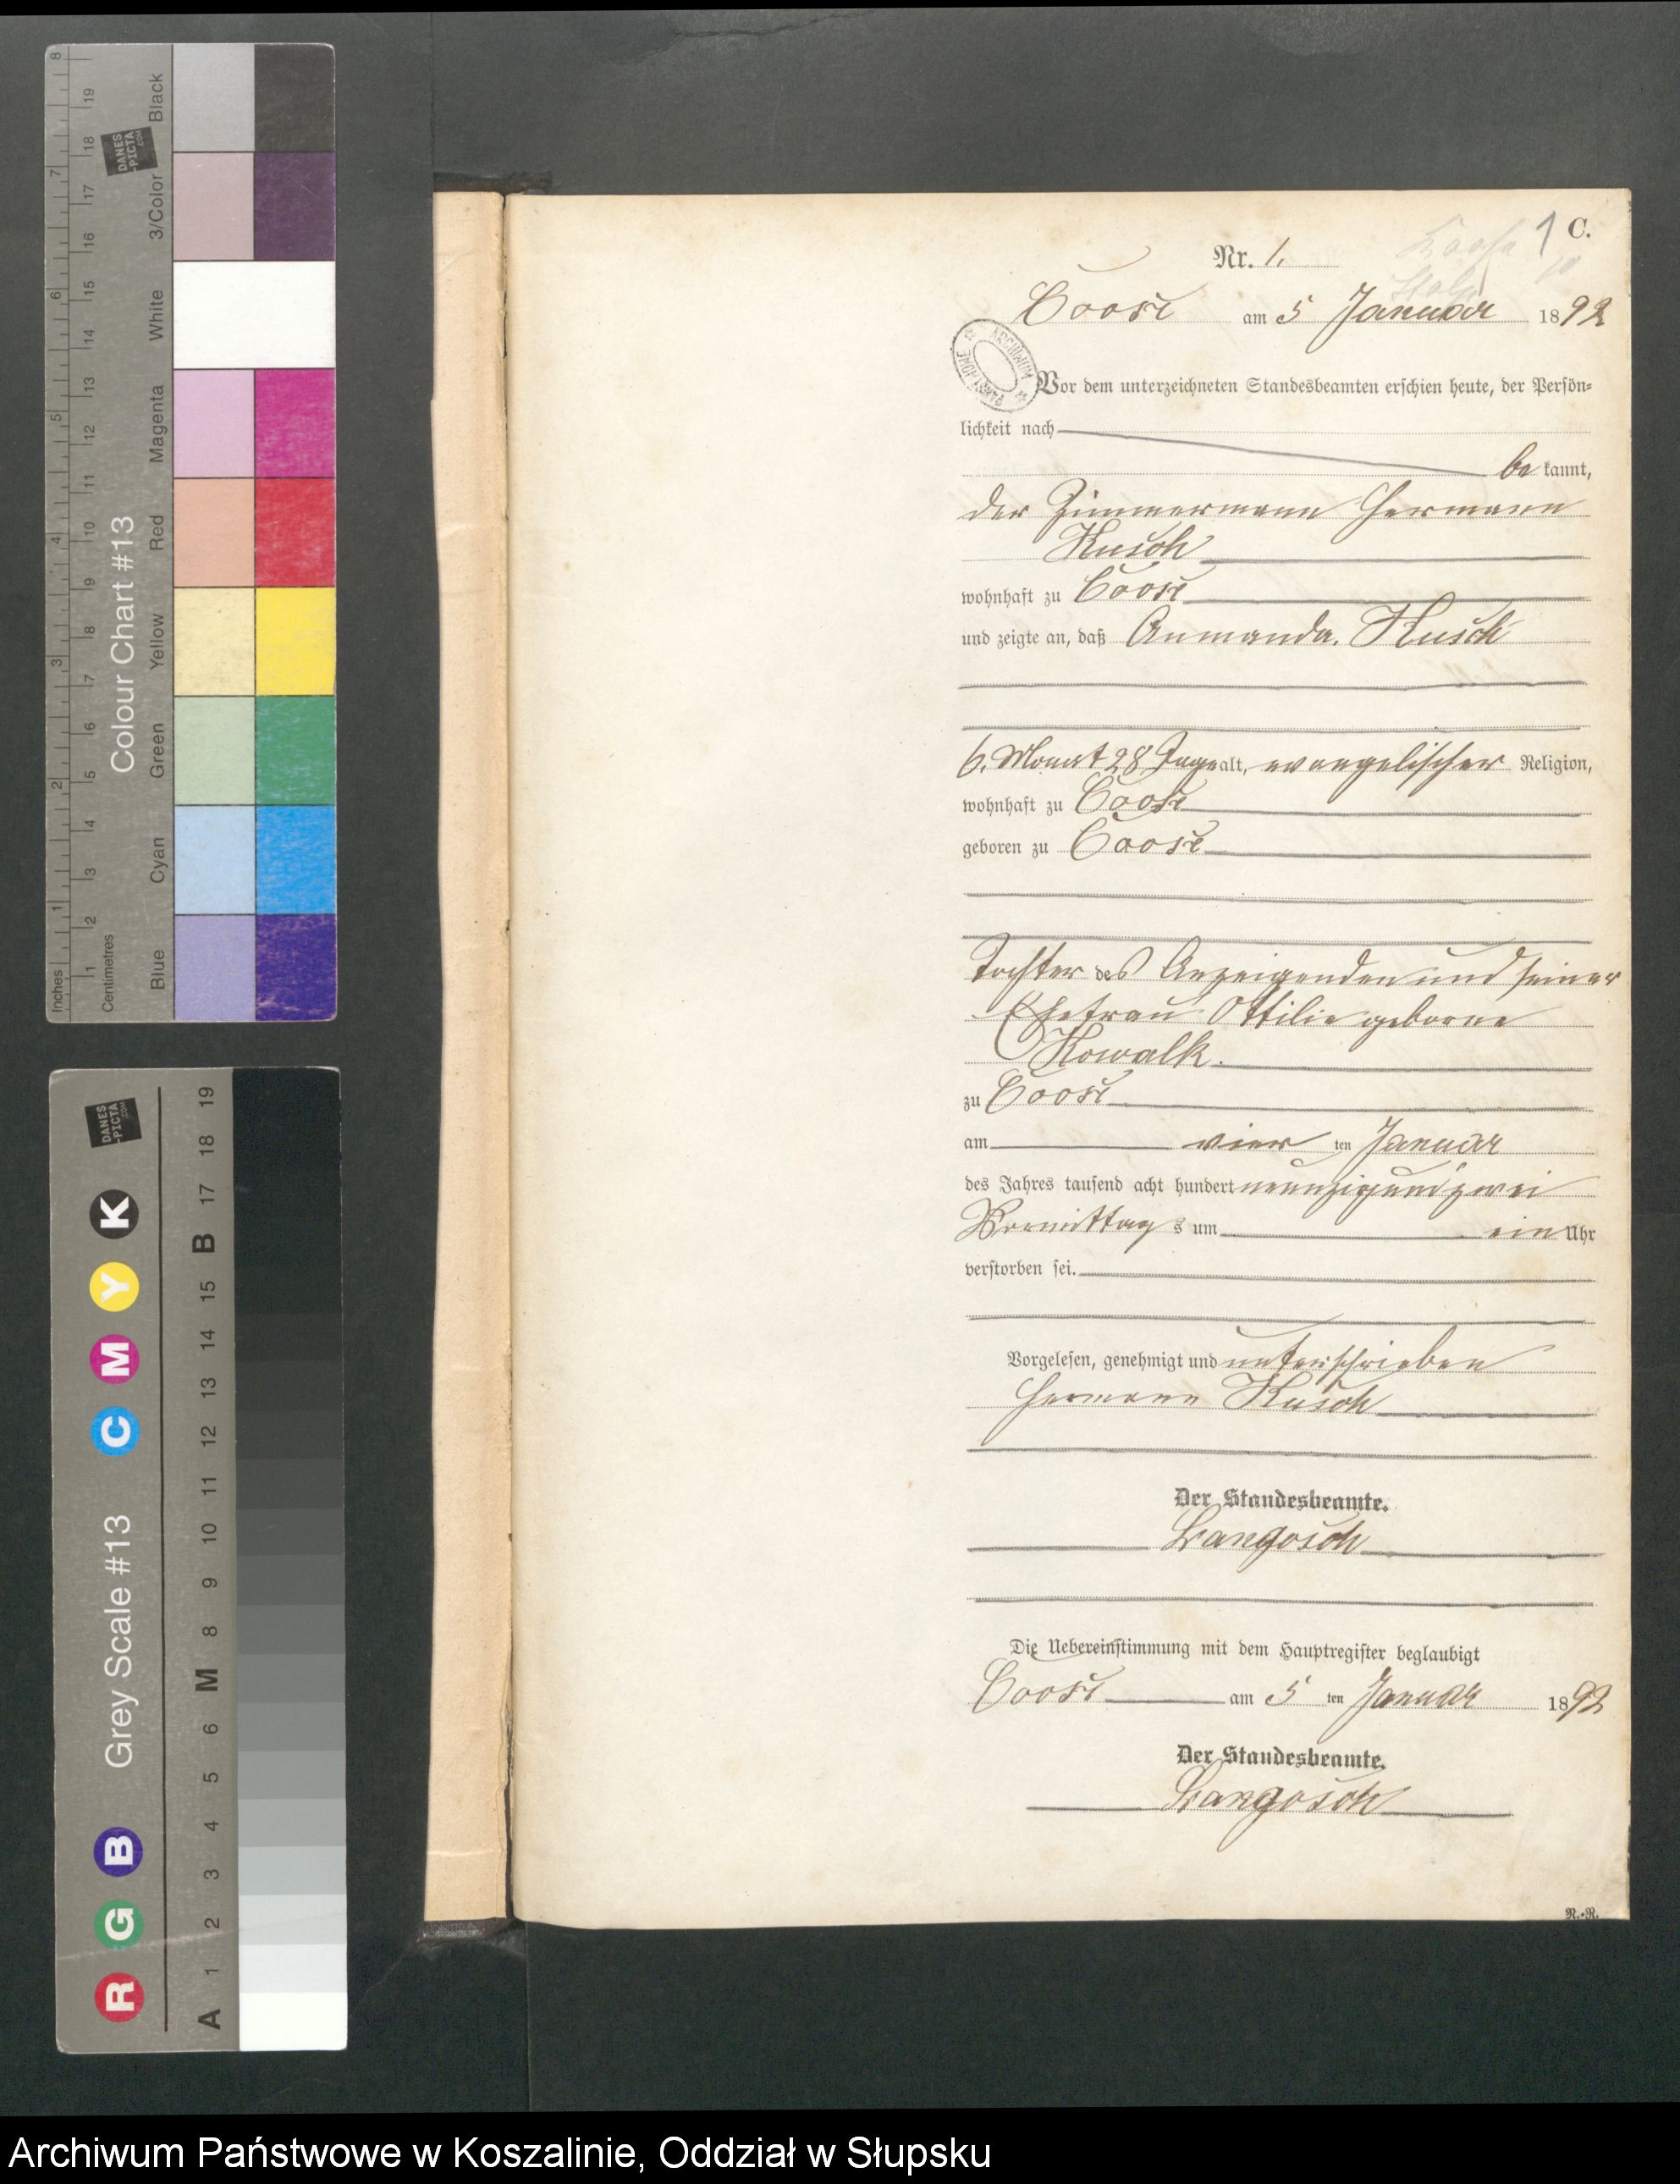 Inches
1
2
3
4
5
6
7
8
Centimetres
1
2
3
4
5
6
7
8
9
10
11
12
13
14
15
16
17
18
19
Colour Chart #13
Blue
Cyan
Green
Yellow
Red
Magenta
White
3/Color
Black
DANES
-PICTA
.COM
Grey Scale #13
R
G
B
C
M
Y
K
A
1
2
3
4
5
6
M
8
9
10
11
12
13
14
15
B
17
18
19
DANES
-PICTA
.COM
1
C.
Nr. 1.
Coose am 5 Januar 1892
ARCHIWUM PAŃSTWOWE
Vor dem unterzeichneten Standesbeamten erschien heute, der Persön-
lichkeit nach
be kannt,
der Zimmermann Hermann
Kusch
wohnhaft zu Coose
und zeigte an, daß Anmanda. Kusch
6. Monat 28 Tage alt, evangelischer Religion,
wohnhaft zu Coose
geboren zu Coose
Tochter des Anzeigenden und seiner
Ehefrau Ottilie geborne
Kowalk.
zu Coose
am vier ten Januar
des Jahres tausend acht hundert neunzigundzwei
Vormittag s um ein Uhr
verstorben sei.
Vorgelesen, genehmigt und unterschrieben
Hermann Kusch
Der Standesbeamte.
Langosch
Die Uebereinstimmung mit dem Hauptregister beglaubigt
Coose am 5 ten Januar 1892
Der Standesbeamte.
Langosch
R.-R.
Archiwum Państwowe w Koszalinie, Oddział w Słupsku